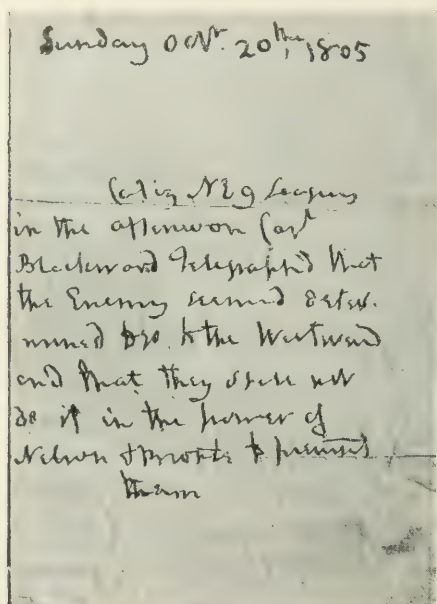 Sunday Oct. 20th, 1805
Cadiz NE 9 Leagues
in the afternoon Capt
Blackwood Telegraph'd that
the Enemy seemed deter-
mined to go to the Westward
and that they shall not
do if in the power of
Nelson & Bronte to prevent
them